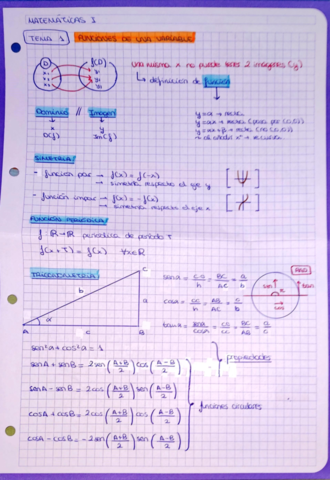 MATEMÁTICAS I
TEMA 1 FUNCIONES DE UNA VARIABLE
D f(D)
una misma x no puede tener 2 imágenes (y)
↳ definición de función
Dominio // Imagen
x y
D(f) Im(f)
y = a → recta
y = ax → recta (pasa por (0,0))
y = ax + b → recta (no (0,0))
SIMETRÍA
- función par → f(x) = f(-x)
→ simetría respecto al eje y
- función impar → f(x) = -f(x)
→ simetría respecto al eje x
FUNCIÓN PERIÓDICA
f: R → R periódica de período T
f(x+T) = f(x) ∀x∈R
TRIGONOMETRÍA
A B C
a b c
α
sen α = co/h = BC/AC = a/b
cos α = cc/h = AB/AC = c/b
tan α = sen α/cos α = co/cc = BC/AB = a/c
RAD
sen
tan
cos
sen²α + cos²α = 1
propiedades
senA + senB = 2 sen((A+B)/2) cos((A-B)/2)
senA - senB = 2 cos((A+B)/2) sen((A-B)/2)
cosA + cosB = 2 cos((A+B)/2) cos((A-B)/2)
cosA - cosB = -2 sen((A+B)/2) sen((A-B)/2)
funciones circulares